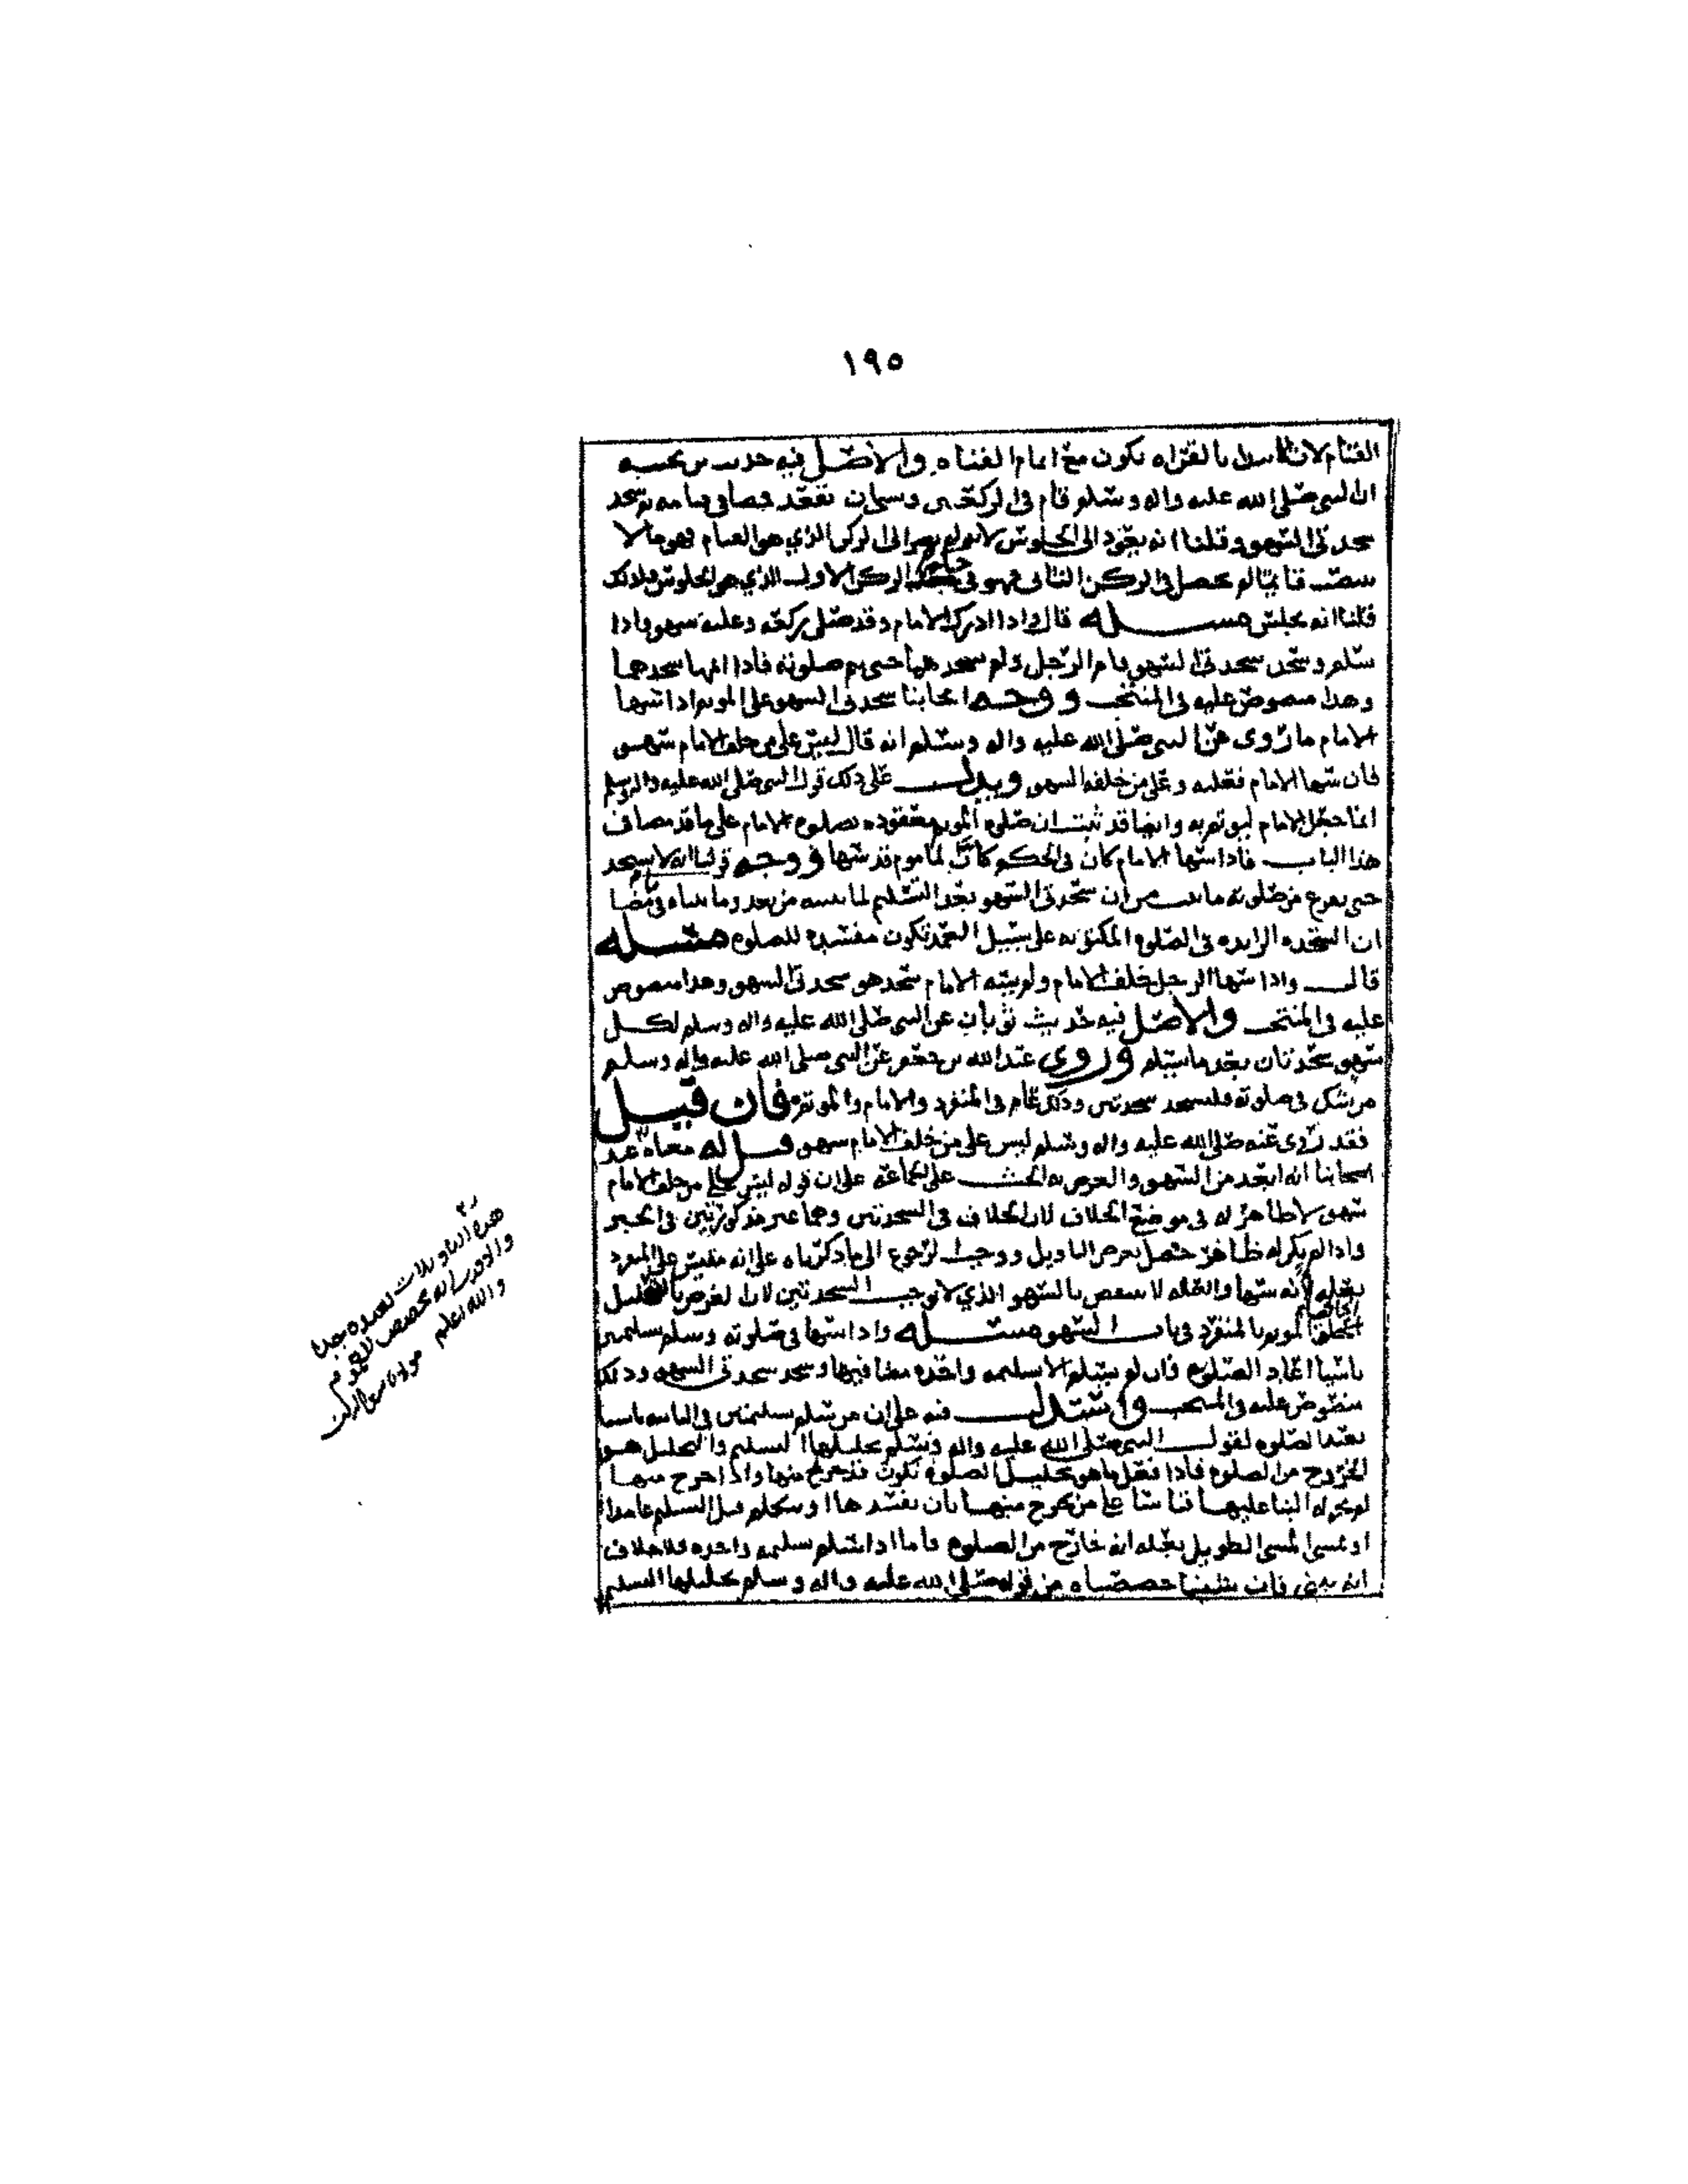 ١٩٥
القيام لان الابتدا بالقراه تكون مع اتمام القيام والاصل فيه حديث بن بحينه
ان النبي صلى الله عليه واله وسلم قام في الركعتين وسبحان فقعد فصافى قيامه ثم سجد
سجدتي السهو وقلنا انه يعود الى الجلوس لانه لم يصر الى الركن الذي هو القيام فهو مالا
ينتصب قايما لم يحصل في الركن الثاني فهو في حكم الركن الاول الذي هو الجلوس فلذلك
قلنا انه يجلس مسـله قال واذا ادرك الامام وقد صلى ركعه وعليه سهو فاذا
سلم وسجد سجدتي السهو قام الرجل ولم يسجدهما حتى يتم صلوته فاذا اتمها سجدهما
وهذا منصوص عليه في المنتخب ووجه ايجابنا سجدتي السهو على الموتم اذا سها
الامام ما روى عن النبي صلى الله عليه واله وسلم انه قال ليس على من خلف الامام سهو
فان سها الامام فعليه وعلى من خلفه السهو ويدل على ذلك قول النبي صلى الله عليه واله وسلم
انما جعل الامام ليوتم به وايضا قد ثبت ان صلوه الموتم معقوده بصلوه الامام على ما قد مضا في
هذا الباب فاذا سها الامام كان في الحكم كان الماموم قد سها ووجه قولنا انه لا يسجد
حتى يفرغ من صلوته ما ثبت من ان سجدتي السهو بعد التسليم لما نبينه من بعد وما بيناه فيما مضا
ان السجده الزايده في الصلوه المكتوبه على سبيل العمد تكون مفسده للصلوه مسـله
قال واذا سها الرجل خلف الامام ولم يسه الامام سجد هو سجدتي السهو وهذا منصوص
عليه في المنتخب والاصل فيه حديث ثوبان عن النبي صلى الله عليه واله وسلم لكل
سهو سجدتان بعد ما يسلم وروى عبد الله بن جعفر عن النبي صلى الله عليه واله وسلم
من شك في صلوته فليسجد سجدتين وذلك عام في المنفرد والامام والموتم فان قيل
فقد روى عنه صلى الله عليه واله وسلم ليس على من خلف الامام سهو قيل له معناه عند
اصحابنا انه ابعد من السهو والغرض به الحث على الجماعه على ان قوله ليس على من خلف الامام
سهو لا ظاهر له في موضع الخلاف لان الخلاف في السجدتين وهما غير مذكورتين في الخبر
واذا لم يكن له ظاهر حصل بعرض التاويل ووجب الرجوع الى ما ذكرناه على انه مقيس على المنفرد
بعله انه سها والعله لا تنتقض بالسهو الذي لا يوجب السجدتين لان الغرض بالتعليل
الحاق الموتم بالمنفرد في باب السهو مسـله واذا سها في صلوته وسلم تسليمتين
ناسيا اعاد الصلوه فان لم يسلم الا تسليمه واحده مضا فيها وسجد سجدتي السهو وذلك
منصوص عليه في المنتخب واستدل فيه على ان من سلم تسليمتين في الثانيه ناسيا
يعيد الصلوه لقول النبي صلى الله عليه واله وسلم تحليلها التسليم والتحليل هو
الخروج من الصلوه فاذا فعل ما هو تحليل الصلوه تكون قد خرج منها واذا خرج منها
لم يجز له البنا عليها قياسا على من يخرج منها بان يفسدها او يتكلم قبل التسليم عامدا
او يمشي المشي الطويل بعله انه خارج من الصلوه فاما اذا سلم تسليمه واحده فلا خلاف
انه يبني فان شيئا خصصناه من قوله صلى الله عليه واله وسلم تحليلها التسليم
هذه التاويلات بعيده جدا
والاقرب انه تخصص للعموم
والله اعلم